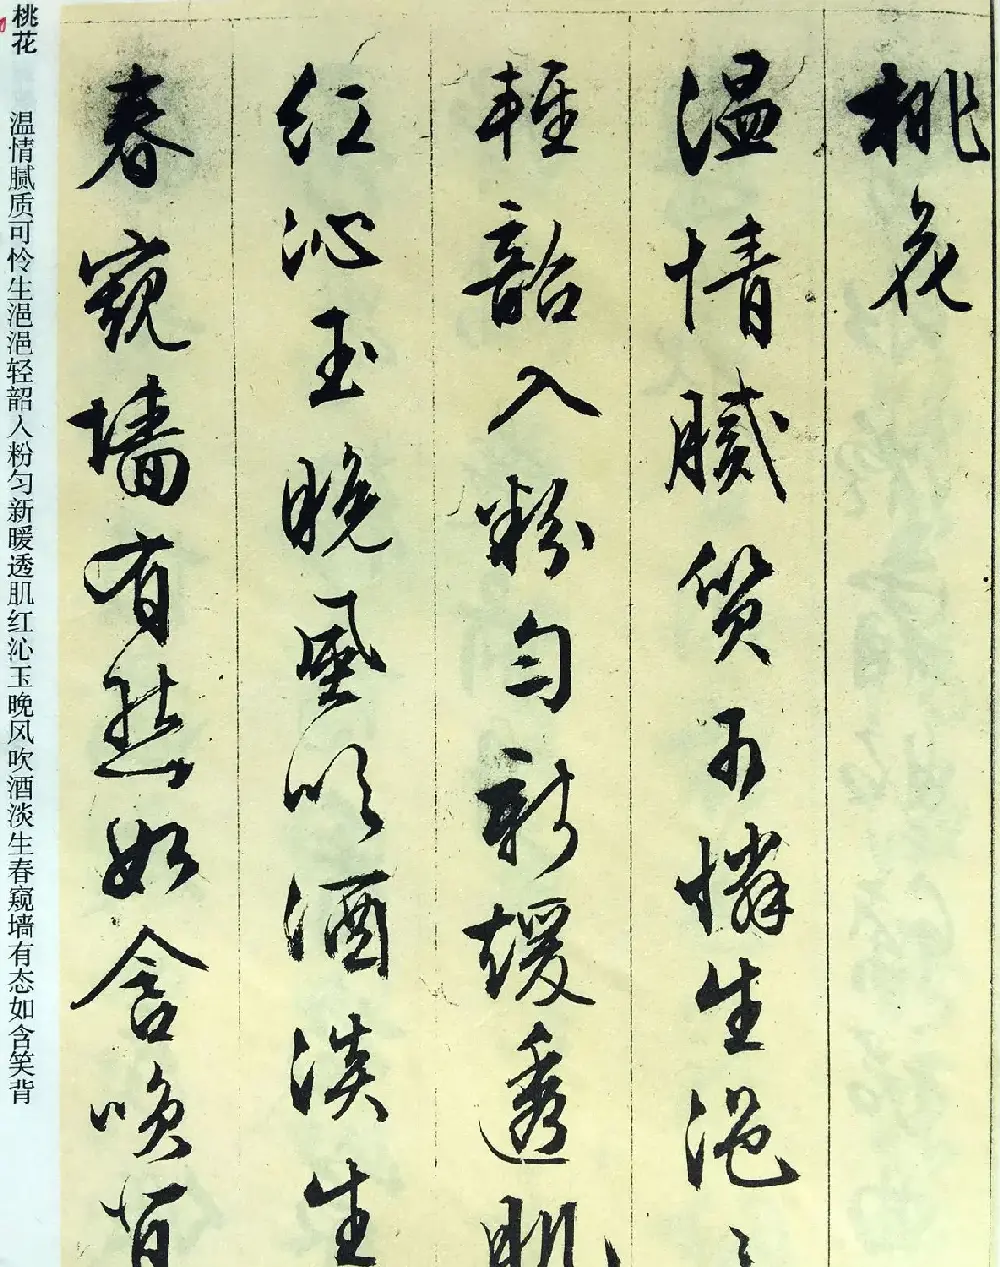 桃花
温情膩質可憐生浥〻
輕韶入粉勻新煖透肌
紅沁玉晚風吹酒淡生
春窺墙有態如含咲背
桃花 温情腻质可怜生浥浥轻韶入粉匀新暖透肌红沁玉晚风吹酒淡生春窥墙有态如含笑背